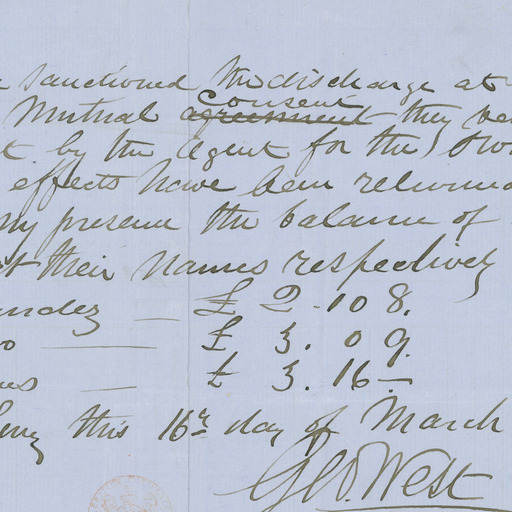 sanctioned the discharge at
Mutual agreement consent they
by the Agent for the
effects have been returned
my presence the balance of
their names respectively
ndez — £ 2 . 10 8.
o — £ 3. 0 9.
— £ 3. 16 —
this 16th day of March
Geo West